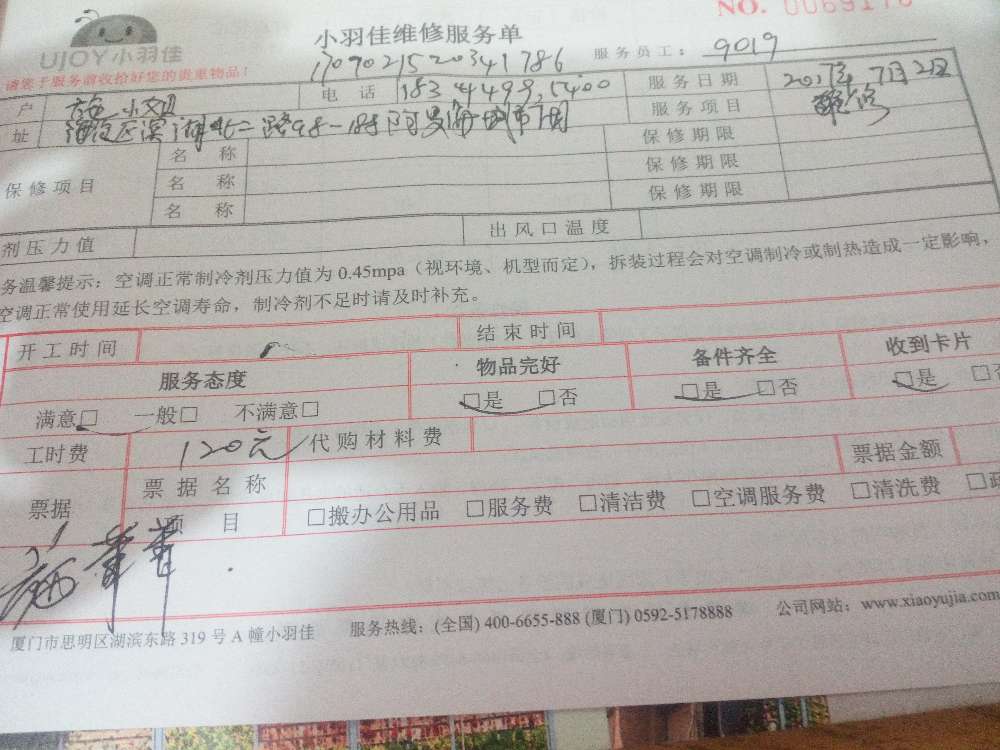 NO. 0069170
UJOY小羽佳
小羽佳维修服务单
请您于服务前收拾好您的贵重物品！
服务员工：9019
户
电 话
服务日期 7月2日
址
服务项目
保修项目
名 称 保修期限
名 称 保修期限
名 称 保修期限
剂压力值 出风口温度
务温馨提示：空调正常制冷剂压力值为0.45mpa（视环境、机型而定），拆装过程会对空调制冷或制热造成一定影响，
空调正常使用延长空调寿命，制冷剂不足时请及时补充。
开工时间 结束时间
服务态度 物品完好 备件齐全 收到卡片
满意□ 一般□ 不满意□ □是 □否 □是 □否 □是 □否
工时费 120元 代购材料费
票据 票据名称 票据金额
项 目 □搬办公用品 □服务费 □清洁费 □空调服务费 □清洗费
厦门市思明区湖滨东路319号A幢小羽佳 服务热线：(全国) 400-6655-888 (厦门) 0592-5178888 公司网站：www.xiaoyujia.com